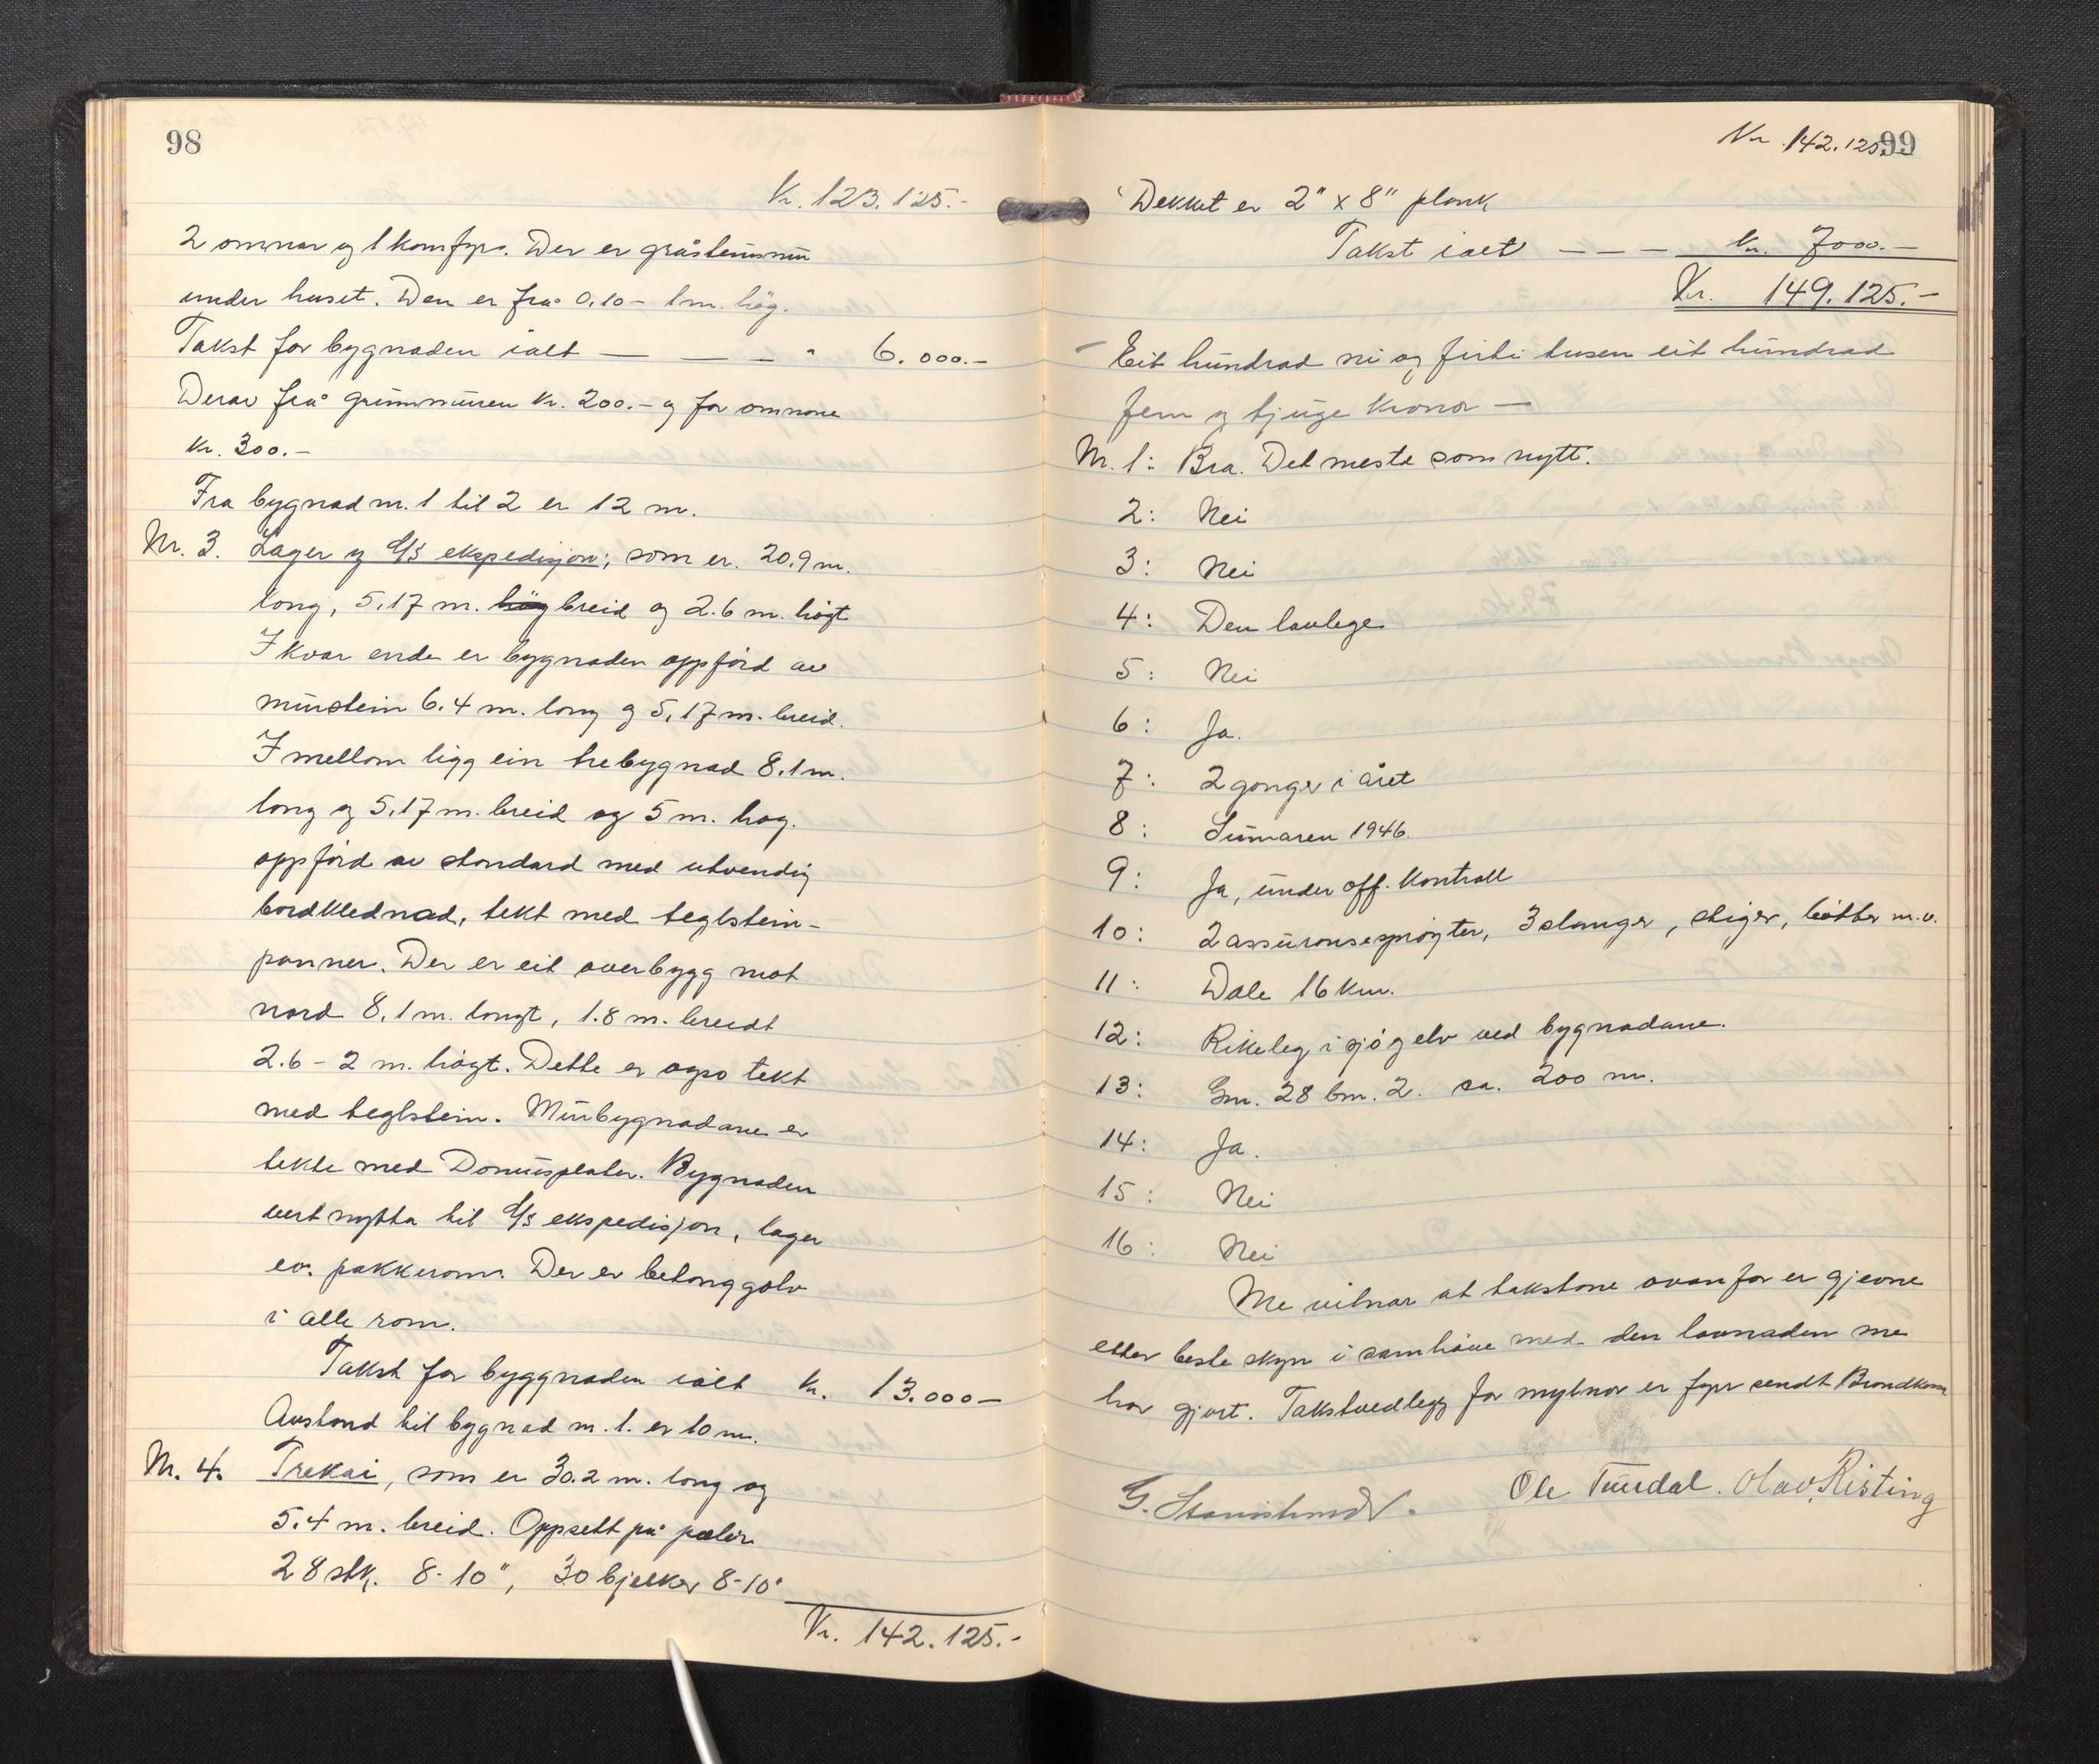 98
Kr. 123.125.-
2 omnar og 1 komfyr. Der er gråsteinsmur
under huset. Den er frå 0,10 - 1 m. høg.
Takst for bygnaden ialt — — — " 6.000.-
Derav frå grunnmuren kr. 200.- og for omnane
kr. 300.-
Fra bygnad nr. 1 til 2 er 12 m.
Nr. 3. Lager og D/S ekspedisjon; som er 20.9 m.
long, 5,17 m. høg breid og 2.6 m. høgt
I kvar ende er bygnaden oppførd av
murstein 6.4 m. long og 5,17 m. breid.
I mellom ligg ein trebygnad 8.1 m.
long og 5,17 m. breid og 5 m. høg.
oppførd av standard med utvendig
bordklednad, tekt med teglstein-
panner. Der er eit overbygg mot
nord 8,1 m. longt, 1.8 m. breidt
2.6 - 2 m. høgt. Dette er ogso tekt
med teglstein. Murbygnadane er
tekte med Donnusplater. Bygnaden
vert nytta til D/S ekspedisjon, lager
ev. pakkerom. Der er betonggolv
i alle rom.
Takst for byggnaden ialt kr. 13.000 —
Avstand til bygnad nr. 1. er 10 m.
Nr. 4. Trekai, som er 30.2 m. long og
5.4 m. breid. Oppsett på pæler
28 stk. 8-10", 30 bjelker 8-10"
Kr. 142.125.-
Kr. 142.125.- 99
Dekket er 2" x 8" plank
Takst ialt — — — kr. 7000.-
Kr. 149.125.-
- Eit hundrad ni og firti tusen eit hundrad
fem og tjuge kronor —
Nr. 1: Bra. Det meste som nytt.
2: Nei
3: Nei
4: Den lovlege
5: Nei
6: Ja.
7: 2 gonger i året
8: Sumaren 1946.
9: Ja, under off. kontroll
10: 2 assuransesprøyter, 3 slanger, stiger, bøtter m.v.
11: Dale 16 km.
12: Rikeleg i sjø og elv ved bygnadane.
13: Gnr. 28 bnr. 2. ca. 200 m.
14: Ja.
15: Nei
16: Nei
Me vitnar at takstane ovanfor er gjevne
etter beste skyn i samhøve med den lovnaden me
har gjort. Takstvedlegg for mylnor er fyr sendt Brandkassa
G. Ole Turdal. Olav Risting